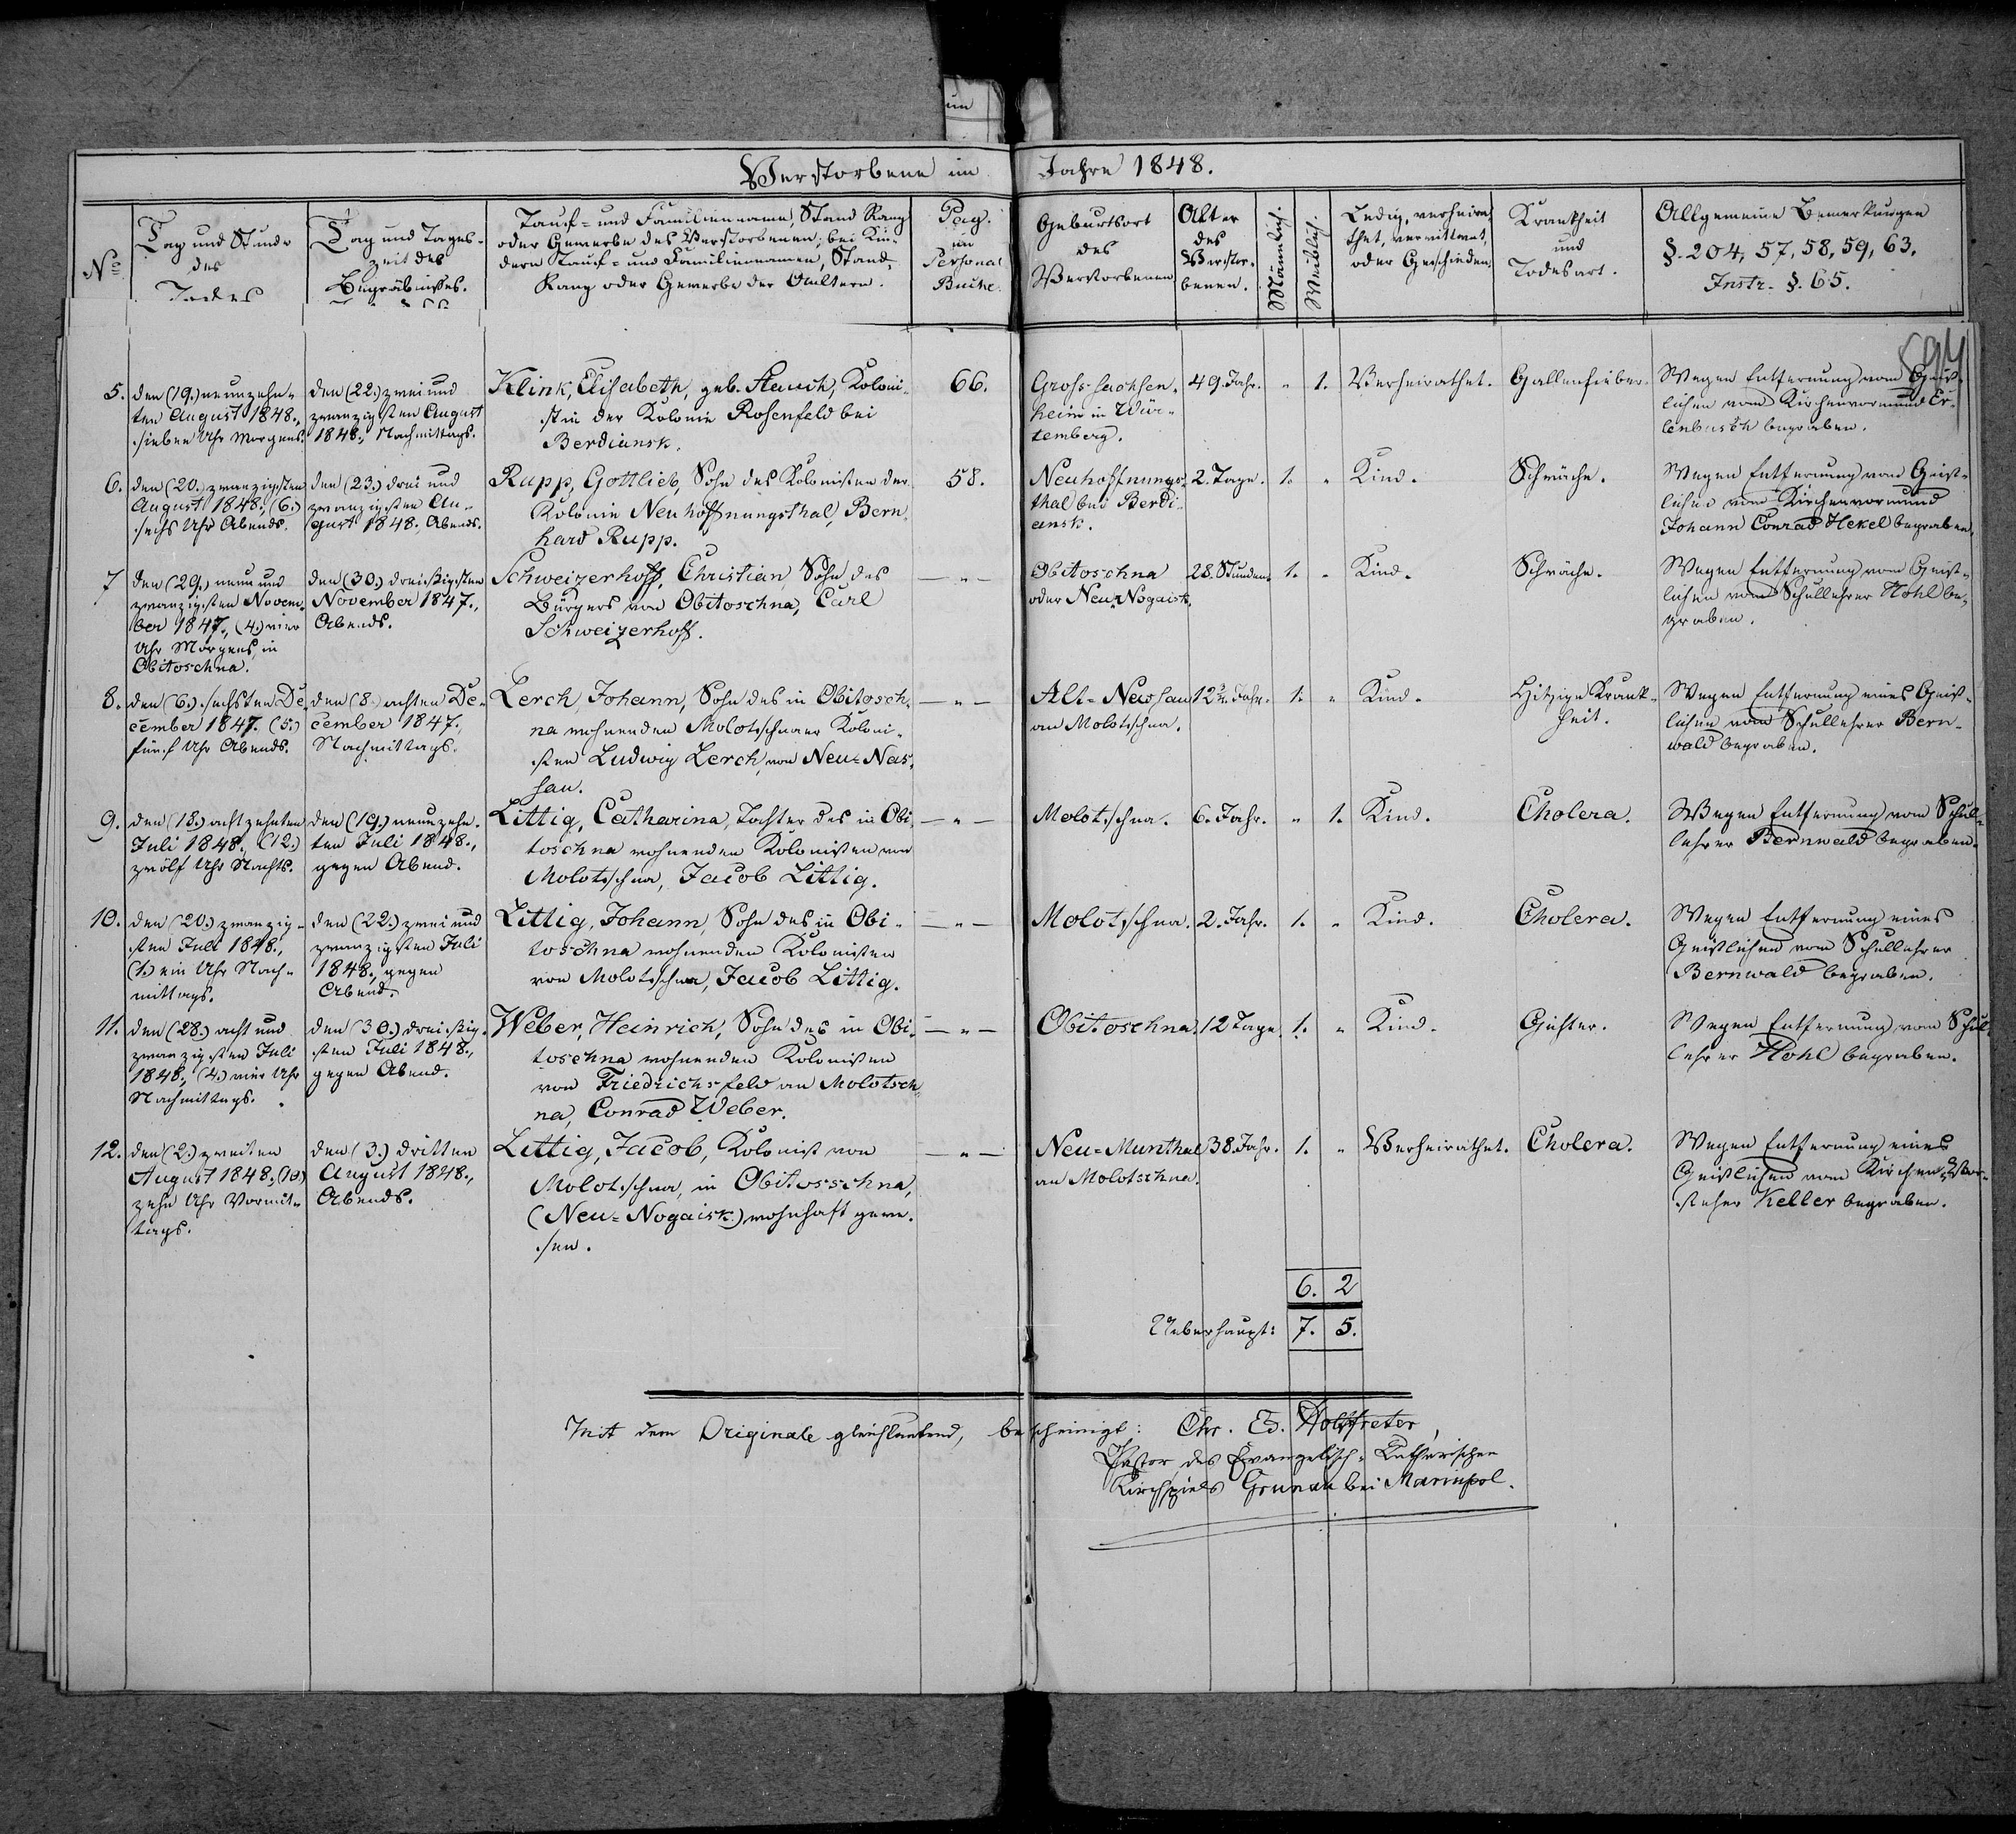 un
Verstorbene im Jahre 1848.
No
Tag und Stunde
des
Todes
Tag und Tages-
zeit des
Begräbnisses.
Tauf- und Familienname, Stand Rang
oder Gewerbe des Verstorbenen; bei Kin-
dern Tauf- und Familiennamen, Stand,
Rang oder Gewerbe der Aeltern.
Pag.
im
Personal
Buche.
Geburtsort
des
Verstorbenen
Alter
des
Verstor-
benen.
Männlich.
Weiblich.
Ledig, verheira-
thet, verwittwet,
oder Geschieden.
Krankheit
und
Todesart.
Allgemeine Bemerkungen
§. 204, 57, 58, 59, 63.
Instr. §. 65.
5.
den (19.) neunzehn-
ten August 1848.,
sieben Uhr Morgens.
den (22.) zwei und
zwanzigsten August
1848., Nachmittags.
Klink, Elisabeth, geb. Stauch, Koloni-
stin der Kolonie Rosenfeld bei
Berdiansk.
66.
Gross-Sachsen-
heim in Wür-
temberg.
49. Jahr.
" 1.
Verheirathet.
Gallenfieber.
Wegen Entfernung vom Geist-
lichen vom Kirchenvormund Er-
lenbusch begraben.
6.
den (20.) zwanzigsten
August 1848., (6.)
sechs Uhr Abends.
den (23.) drei und
zwanzigsten Au-
gust 1848, Abends.
Rupp, Gottlieb, Sohn des Kolonisten der
Kolonie Neuhoffnungsthal, Bern-
hard Rupp.
58.
Neuhoffnungs-
thal bei Berdi-
ansk.
2. Tage.
1. "
Kind.
Schwäche.
Wegen Entfernung vom Geist-
lichen vom Kirchenvormund
Johann Conrad Hekel begraben.
7
den (29.) neun und
zwanzigsten Novem-
ber 1847., (4.) vier
Uhr Morgens, in
Obitoschna.
den (30.) dreißigsten
November 1847.,
Abends.
Schweizerhoff, Christian, Sohn des
Bürgers von Obitoschna, Carl
Schweizerhoff.
— " —
Obitoschna
oder Neu-Nogaisk.
28. Stunden.
1. "
Kind.
Schwäche.
Wegen Entfernung vom Geist-
lichen vom Schullehrer Hohl be-
graben.
8.
den (6.) sechsten De-
cember 1847. (5.)
fünf Uhr Abends.
den (8.) achten De-
cember 1847.,
Nachmittags.
Lerch, Johann, Sohn des in Obitosch-
na wohnenden Molotschnaer Koloni-
sten Ludwig Lerch, von Neu-Nas-
sau.
— " —
Alt-Nassau
an Molotschna.
1. "
Kind.
Hitzige Krank-
heit.
Wegen Entfernung eines Geist-
lichen vom Schullehrer Bern-
wald begraben.
9.
den (18.) achtzehnten
Juli 1848., (12.)
zwölf Uhr Nachts.
den (19.) neunzehn-
ten Juli 1848.,
gegen Abend.
Littig, Catharina, Tochter des in Obi-
toschna wohnenden Kolonisten von
Molotschna, Jacob Littig.
— " —
Molotschna.
6. Jahr.
" 1.
Kind.
Cholera.
Wegen Entfernung vom Schul-
lehrer Bernwald begraben.
10.
den (20.) zwanzig-
sten Juli 1848.,
(1.) ein Uhr Nach-
mittags.
den (22.) zwei und
zwanzigsten Juli
1848., gegen
Abend.
Littig, Johann, Sohn des in Obi-
toschna wohnenden Kolonisten
von Molotschna, Jacob Littig.
— " —
Molotschna.
2. Jahr.
1. "
Kind.
Cholera.
Wegen Entfernung eines
Geistlichen vom Schullehrer
Bernwald begraben.
11.
den (28.) acht und
zwanzigsten Juli
1848., (4.) vier Uhr
Nachmittags.
den (30.) dreißig-
sten Juli 1848.,
gegen Abend.
Weber, Heinrich, Sohn des in Obi-
toschna wohnenden Kolonisten
von Friedrichsfeld an Molotsch-
na, Conrad Weber.
— " —
Obitoschna.
12 Tage.
1. "
Kind.
Gichter.
Wegen Entfernung vom Schul-
lehrer Hohl begraben.
12.
den (2.) zweiten
August 1848., (10)
zehn Uhr Vormit-
tags.
den (3.) dritten
August 1848.,
Abends.
Littig, Jacob, Kolonist von
Molotschna, in Obitosschna,
(Neu-Nogaisk.) wohnhaft gewe-
sen.
— " —
Neu-Munthal
an Molotschna.
38. Jahr.
1. "
Verheirathet.
Cholera.
Wegen Entfernung eines
Geistlichen vom Kirchen-Vor-
steher Keller begraben.
6. 2
Ueberhaupt: 7. 5.
Mit dem Originale gleichlautend, bescheinigt: Chr. Ed. Holtfreter,
Pastor des Evangelisch-Lutherischen
Kirchspiels Grunau bei Mariupol.